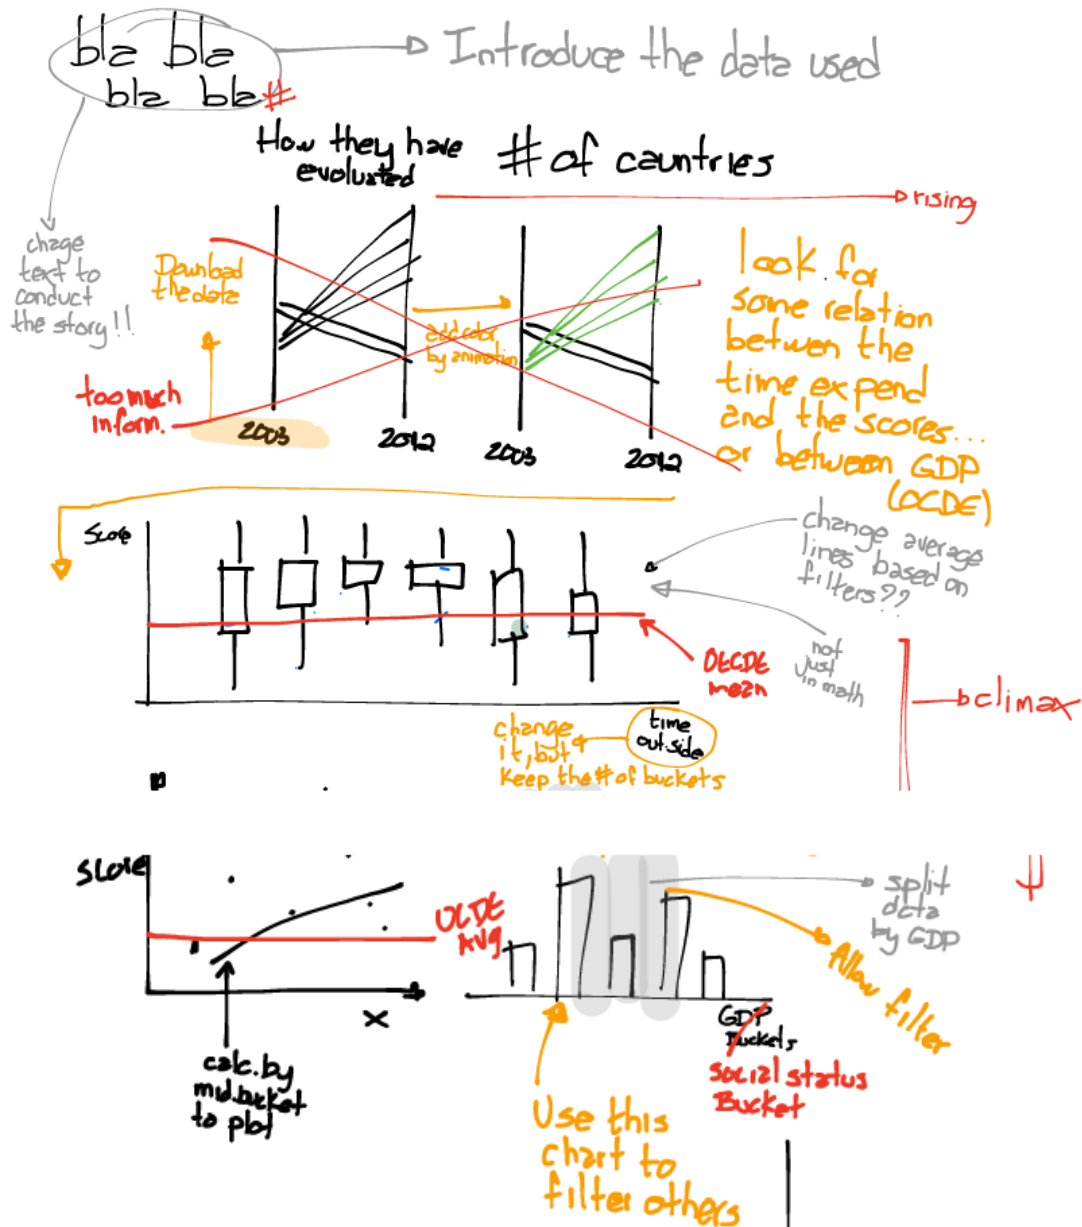 bla bla
bla bla #
Introduce the data used
How they have
evoluated
# of countries
rising
chage
text to
conduct
the story!!
Download
the data
add color
by animation
too much
inform.
2003
2012
2003
2012
look for
some relation
betwen the
time expend
and the scores...
or between GDP
(OCDE)
Score
change average
lines based on
filters??
not
just
in math
OECDE
mean
climax
time
outside
change
it, but
keep the # of buckets
score
OCDE
AVG
x
calc. by
mid. bucket
to plot
split
data
by GDP
Allow filter
GDP
Buckets
social status
Bucket
Use this
chart to
filter others